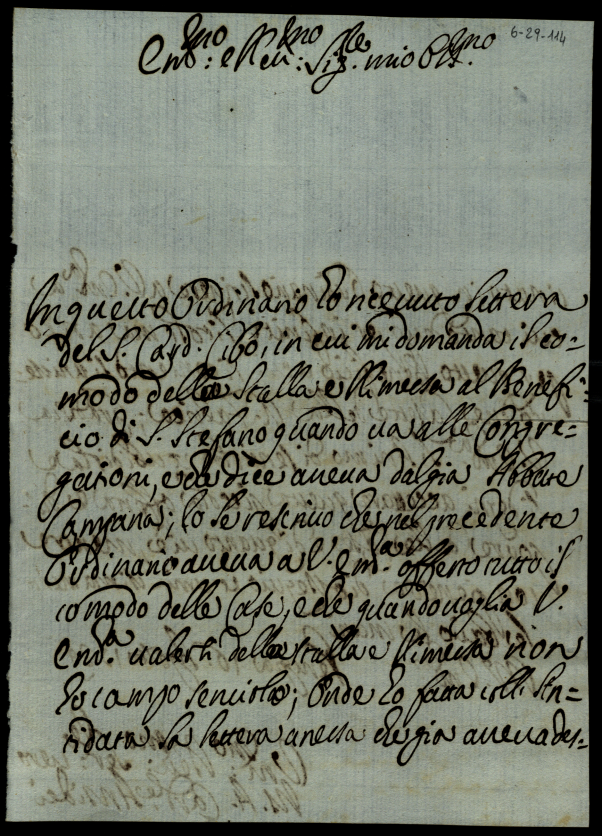 6-29-114
Em.mo e Rev.mo Sig.re mio Oss.mo
In questo Ordinario hò riceuuto lettera
del S. Card. Cibo, in cui mi domanda il co=
modo della Stalla e Rimessa al Benefi=
cio di S. Stefano quando uà alle Congre=
gationi, e che dice aueua dal già Abbate
Campana; Io le rescriuo che nel precedente
Ordinario aueua a V. Em.a offerto tutto il
comodo delle Case, e che quando uoglia V.
Em.a ualersi della stalla e Rimessa non
hò campo seruirlo; Onde hò fatta
tidata la lettera anessa che già aueua des=